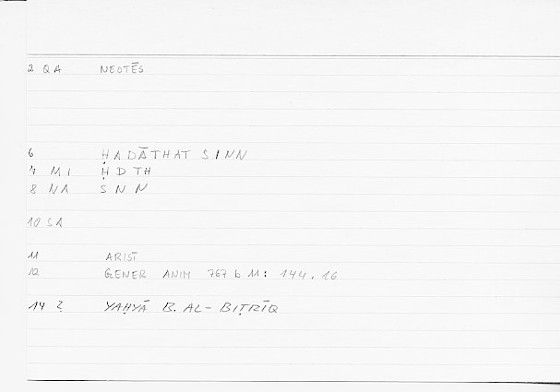 2 QA NEOTĒS
6 ḤADĀTHAT SINN
7 MI ḤDTH
8 NA SNN
10 SA
11 ARIST
12 GENER ANIM 767 b 11: 144.16
14 2 YAḤYĀ B. AL-BIṬRĪQ